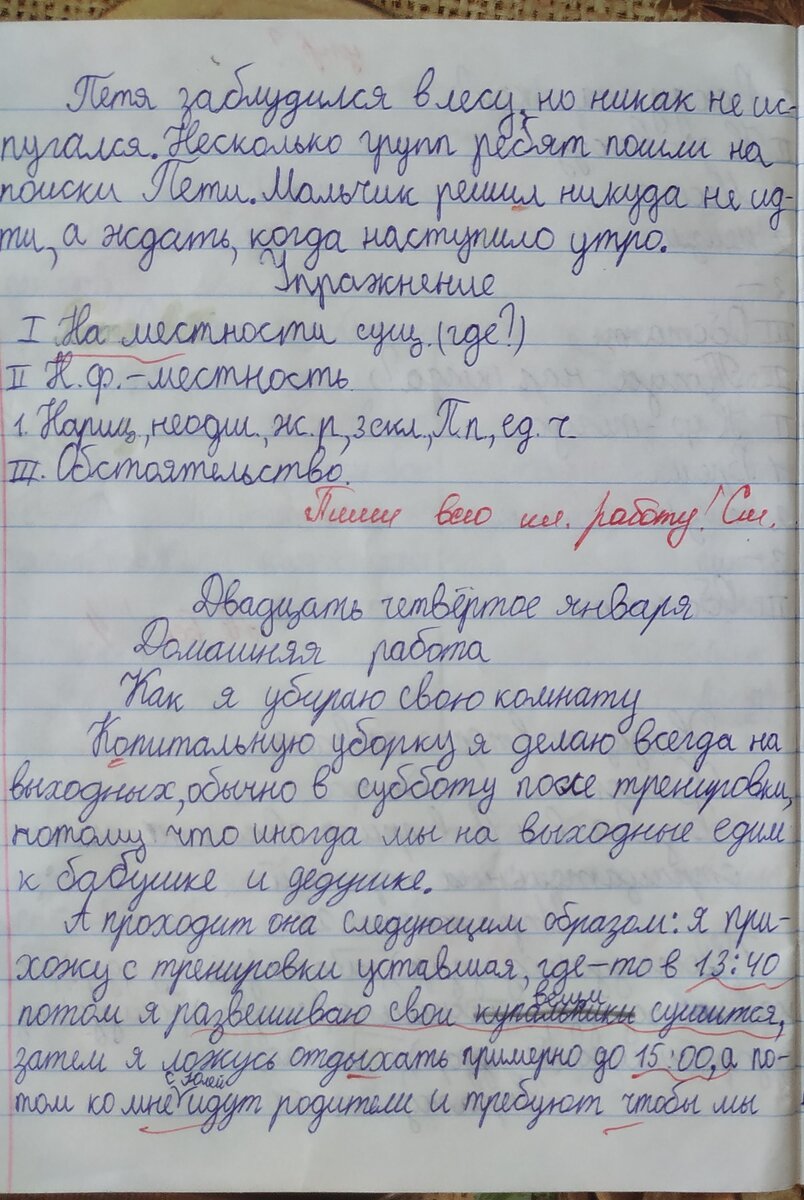 Петя заблудился в лесу, но никак не ис-
пугался. Несколько групп ребят пошли на
поиски Пети. Мальчик решил никуда не ид-
ти, а ждать, когда наступило утро.
Упражнение
I На местности сущ. (где?)
II Н.ф.-местность.
1. Нариц., неодш., ж.р., 3 скл., П.п., ед. ч.
III. Обстоятельство.
Пиши всю кл. работу! См.
Двадцать четвёртое января
Домашняя работа
Как я убираю свою комнату
Копитальную уборку я делаю всегда на
выходных, обычно в субботу после тренировки,
потому что иногда мы на выходные едим
к бабушке и дедушке.
А проходит она следующим образом: я при-
хожу с тренировки уставшая, где-то в 13:40
потом я развешиваю свои купальники вещи сушится,
затем я ложусь отдыхать примерно до 15:00, а по-
том ко мне с Юлей идут родители и требуют чтобы мы